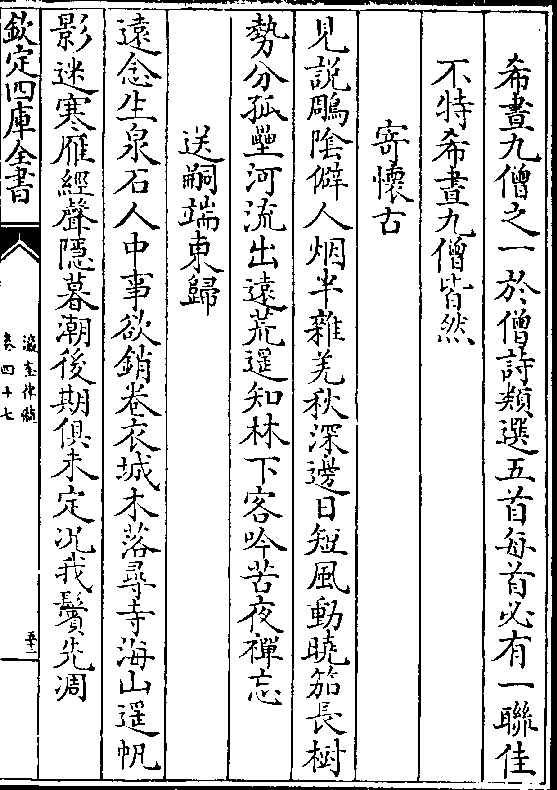 希晝九僧之一於僧詩類選五首每首必有一聯佳
不特希晝九僧皆然
寄懷古
見說鵰陰僻人烟半雜羌秋深邊日短風動曉笳長樹
勢分孤壘河流出遠荒遥知林下客吟苦夜禪忘
送嗣端東歸
遠念生泉石人中事欲銷卷衣城木落尋寺海山遥帆
影迷寒雁經聲隱暮潮後期俱未定況我鬢先凋
欽定四庫全書
瀛奎律髓
卷四十七